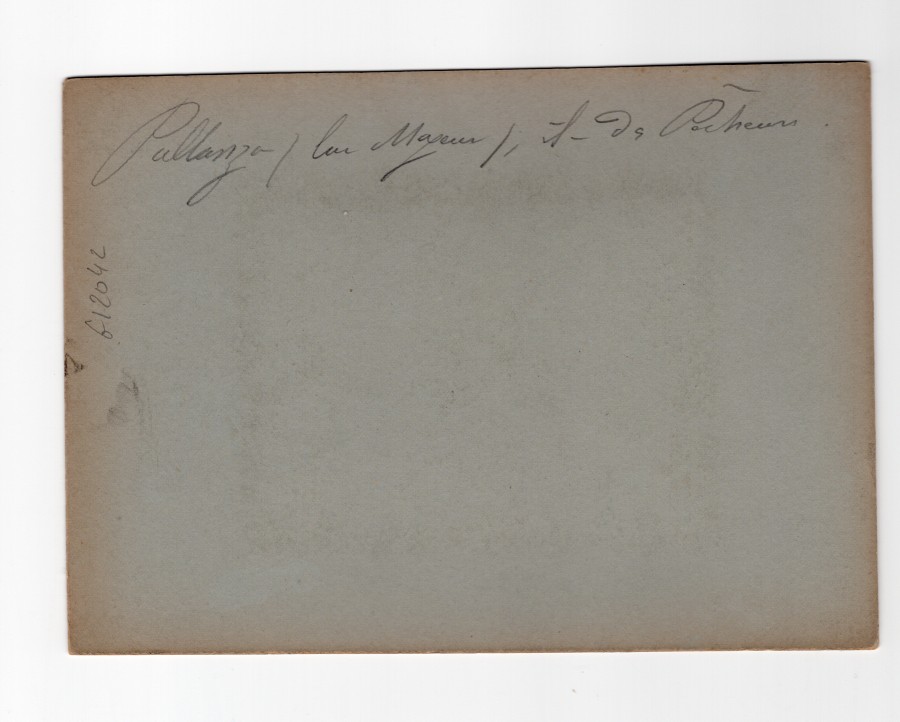 Pallanza (lac Majeur), île des Pêcheurs.
612042